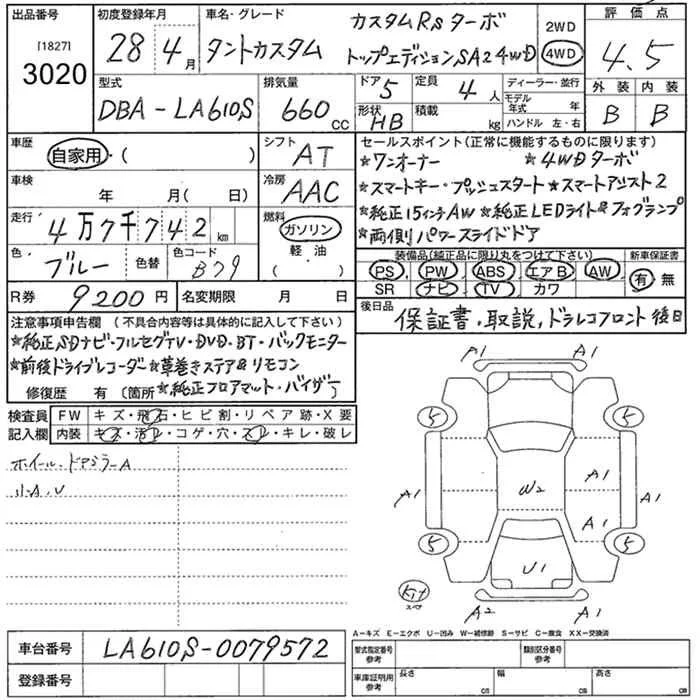 出品番号
[1827]
3020
初度登録年月
28 4月
車名・グレード
カスタムRSターボ
タントカスタム トップエディションSA2 4WD
2WD
4WD
評価点
4.5
外装 内装
B B
型式
DBA-LA610S
排気量
660 cc
ドア 5
形状 HB
定員 4人
積載 kg
ディーラー・並行
モデル年式 年
ハンドル 左・右
車歴
自家用・( )
シフト
AT
車検
年 月( 日)
冷房
AAC
走行
4万7千742 km
燃料
ガソリン
軽・油
・( )
色
ブルー
色替
色コード
B79
R券 9200円
名変期限 月 日
セールスポイント(正常に機能するものに限ります)
☆ワンオーナー ☆4WDターボ
☆スマートキー・プッシュスタート☆スマートアシスト2
☆純正15インチAW☆純正LEDライト&フォグランプ
☆両側パワースライドドア
装備品(純正品に限り丸をつけて下さい)
PS PW ABS エアB AW
SR ナビ TV カワ
新車保証書
有・無
後日品
保証書、取説、ドラレコフロント後日
注意事項申告欄(不具合内容等は具体的に記入して下さい)
☆純正SDナビ・フルセグTV・DVD・BT・バックモニター
☆前後ドライブレコーダー☆革巻きステア&リモコン
修復歴 有〔箇所☆純正フロアマット・バイザー〕
検査員記入欄
FW キズ・飛石・ヒビ割・リペア跡・X要
内装 キズ・汚レ・コゲ・穴・スレ・キレ・破レ
ホイール・ドアミラーA
小A.U
A1 A1
5 5
A1 W2 A1 A1
A1
5 5
U1
Kit
スペア
A2 A1
A−キズ E−エクボ U−凹み W−補修跡 S−サビ C−腐食 XX−交換済
車台番号 LA610S-0079572
登録番号
型式指定番号
参考
類別区分番号
参考
車庫証明用
参考
長さ cm
幅 cm
高さ cm